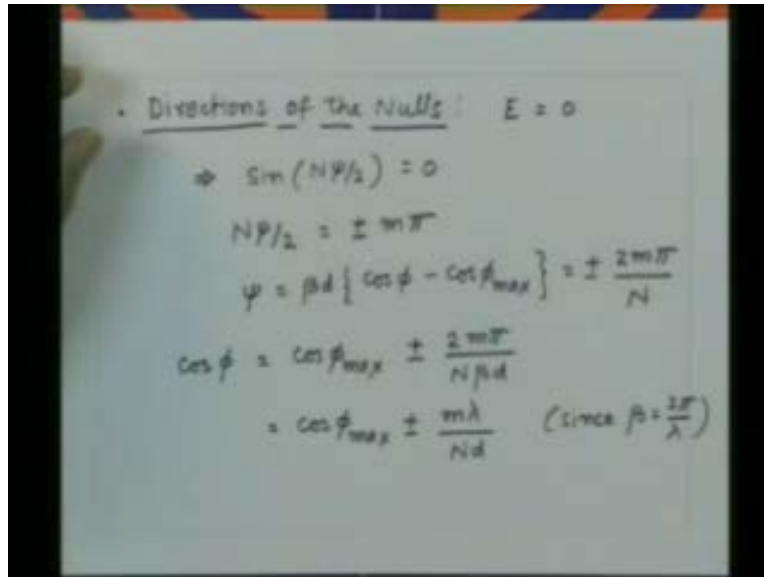 . Directions of the Nulls : E = 0
⇒ Sin(Nψ/2) = 0
Nψ/2 = ± mπ
ψ = βd { cosϕ - cosϕmax } = ± 2mπ/N
cosϕ = cosϕmax ± 2mπ/Nβd
= cosϕmax ± mλ/Nd (since β = 2π/λ)